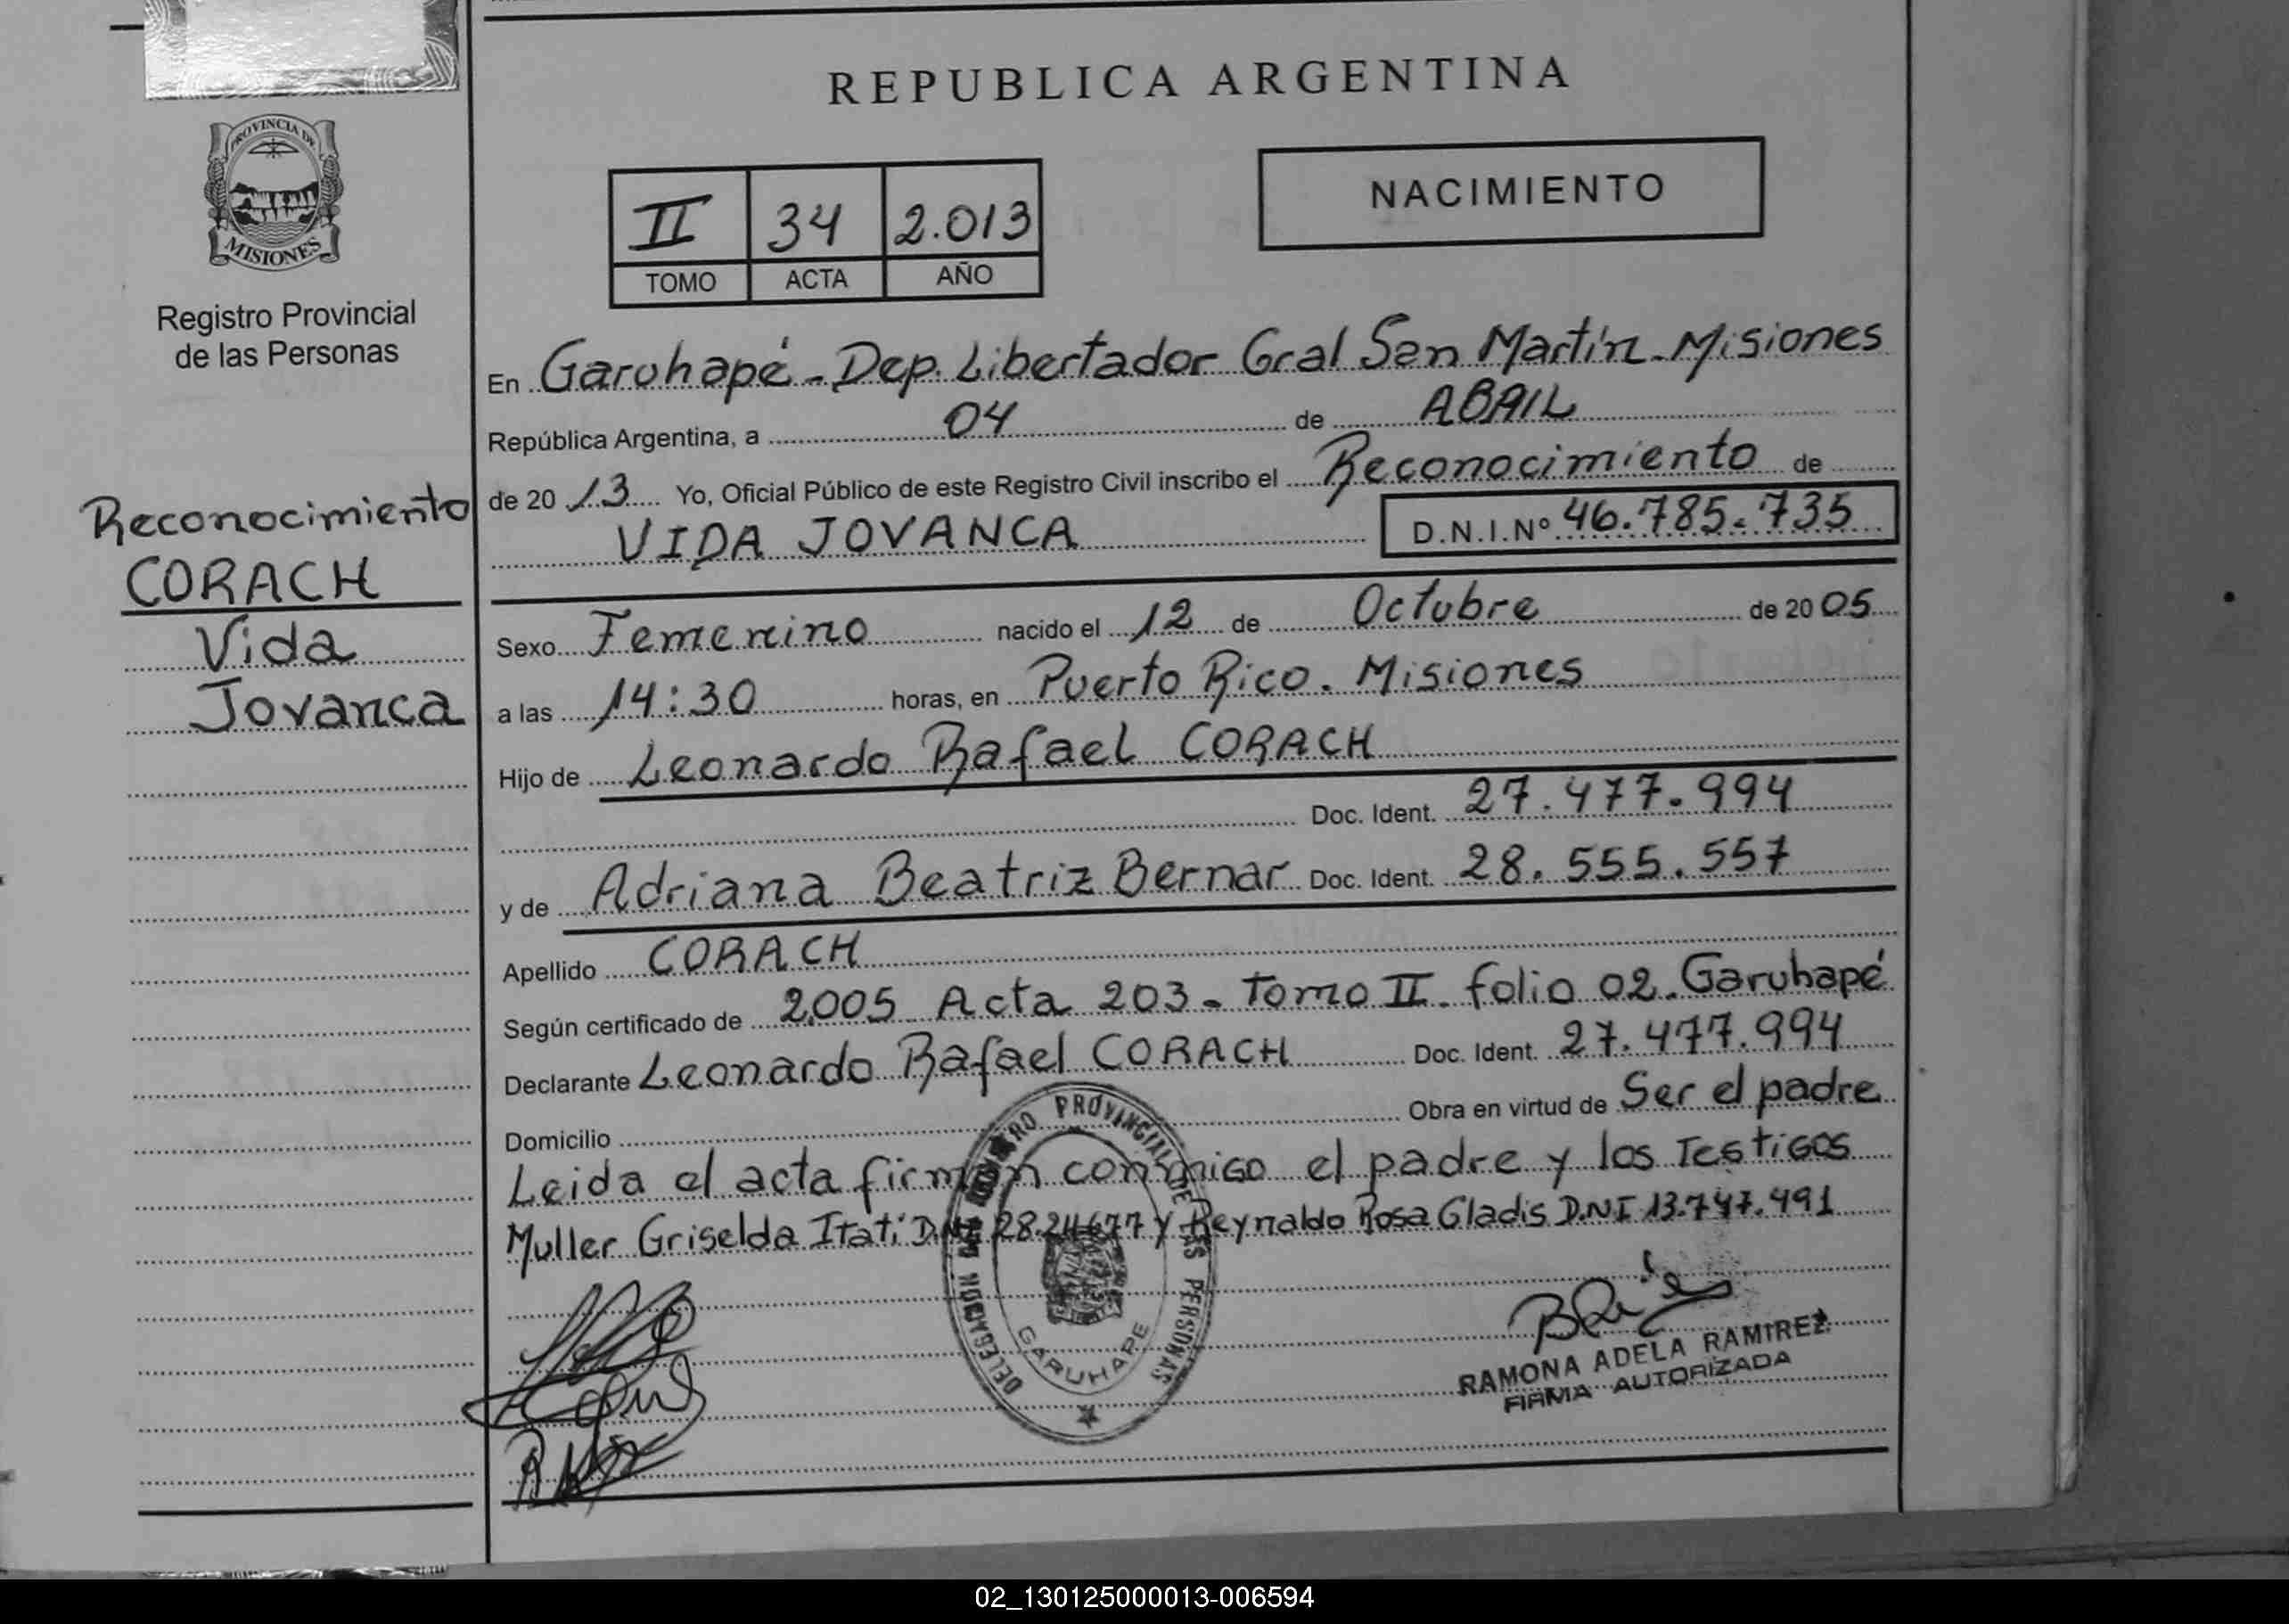 REPUBLICA ARGENTINA
PROVINCIA DE
MISIONES
Registro Provincial
de las Personas
II 34 2.013
TOMO ACTA AÑO
NACIMIENTO
En Garuhapé - Dep. Libertador Gral San Martín - Misiones
República Argentina, a 04 de ABRIL
de 20 13 Yo, Oficial Público de este Registro Civil inscribo el Reconocimiento de
VIDA JOVANCA D.N.I.Nº 46.785.735
Reconocimiento
CORACH
Vida
Jovanca
Sexo Femenino nacido el 12 de Octubre de 20 05
a las 14:30 horas, en Puerto Rico. Misiones
Hijo de Leonardo Rafael CORACH
Doc. Ident. 27.477.994
y de Adriana Beatriz Bernar Doc. Ident. 28.555.557
Apellido CORACH
Según certificado de 2005 Acta 203 - Tomo II - folio 02 - Garuhapé
Declarante Leonardo Rafael CORACH Doc. Ident. 27.477.994
Domicilio Obra en virtud de Ser el padre
Leida el acta firman conmigo el padre y los Testigos
Muller Griselda Itatí D.N.I 28.24677 y Reynaldo Rosa Gladis D.N.I 13.747.491
PROVINCIAL DE LAS PERSONAS
DELEGACION
GARUHAPE
RAMONA ADELA RAMIREZ
FIRMA AUTORIZADA
02_130125000013-006594